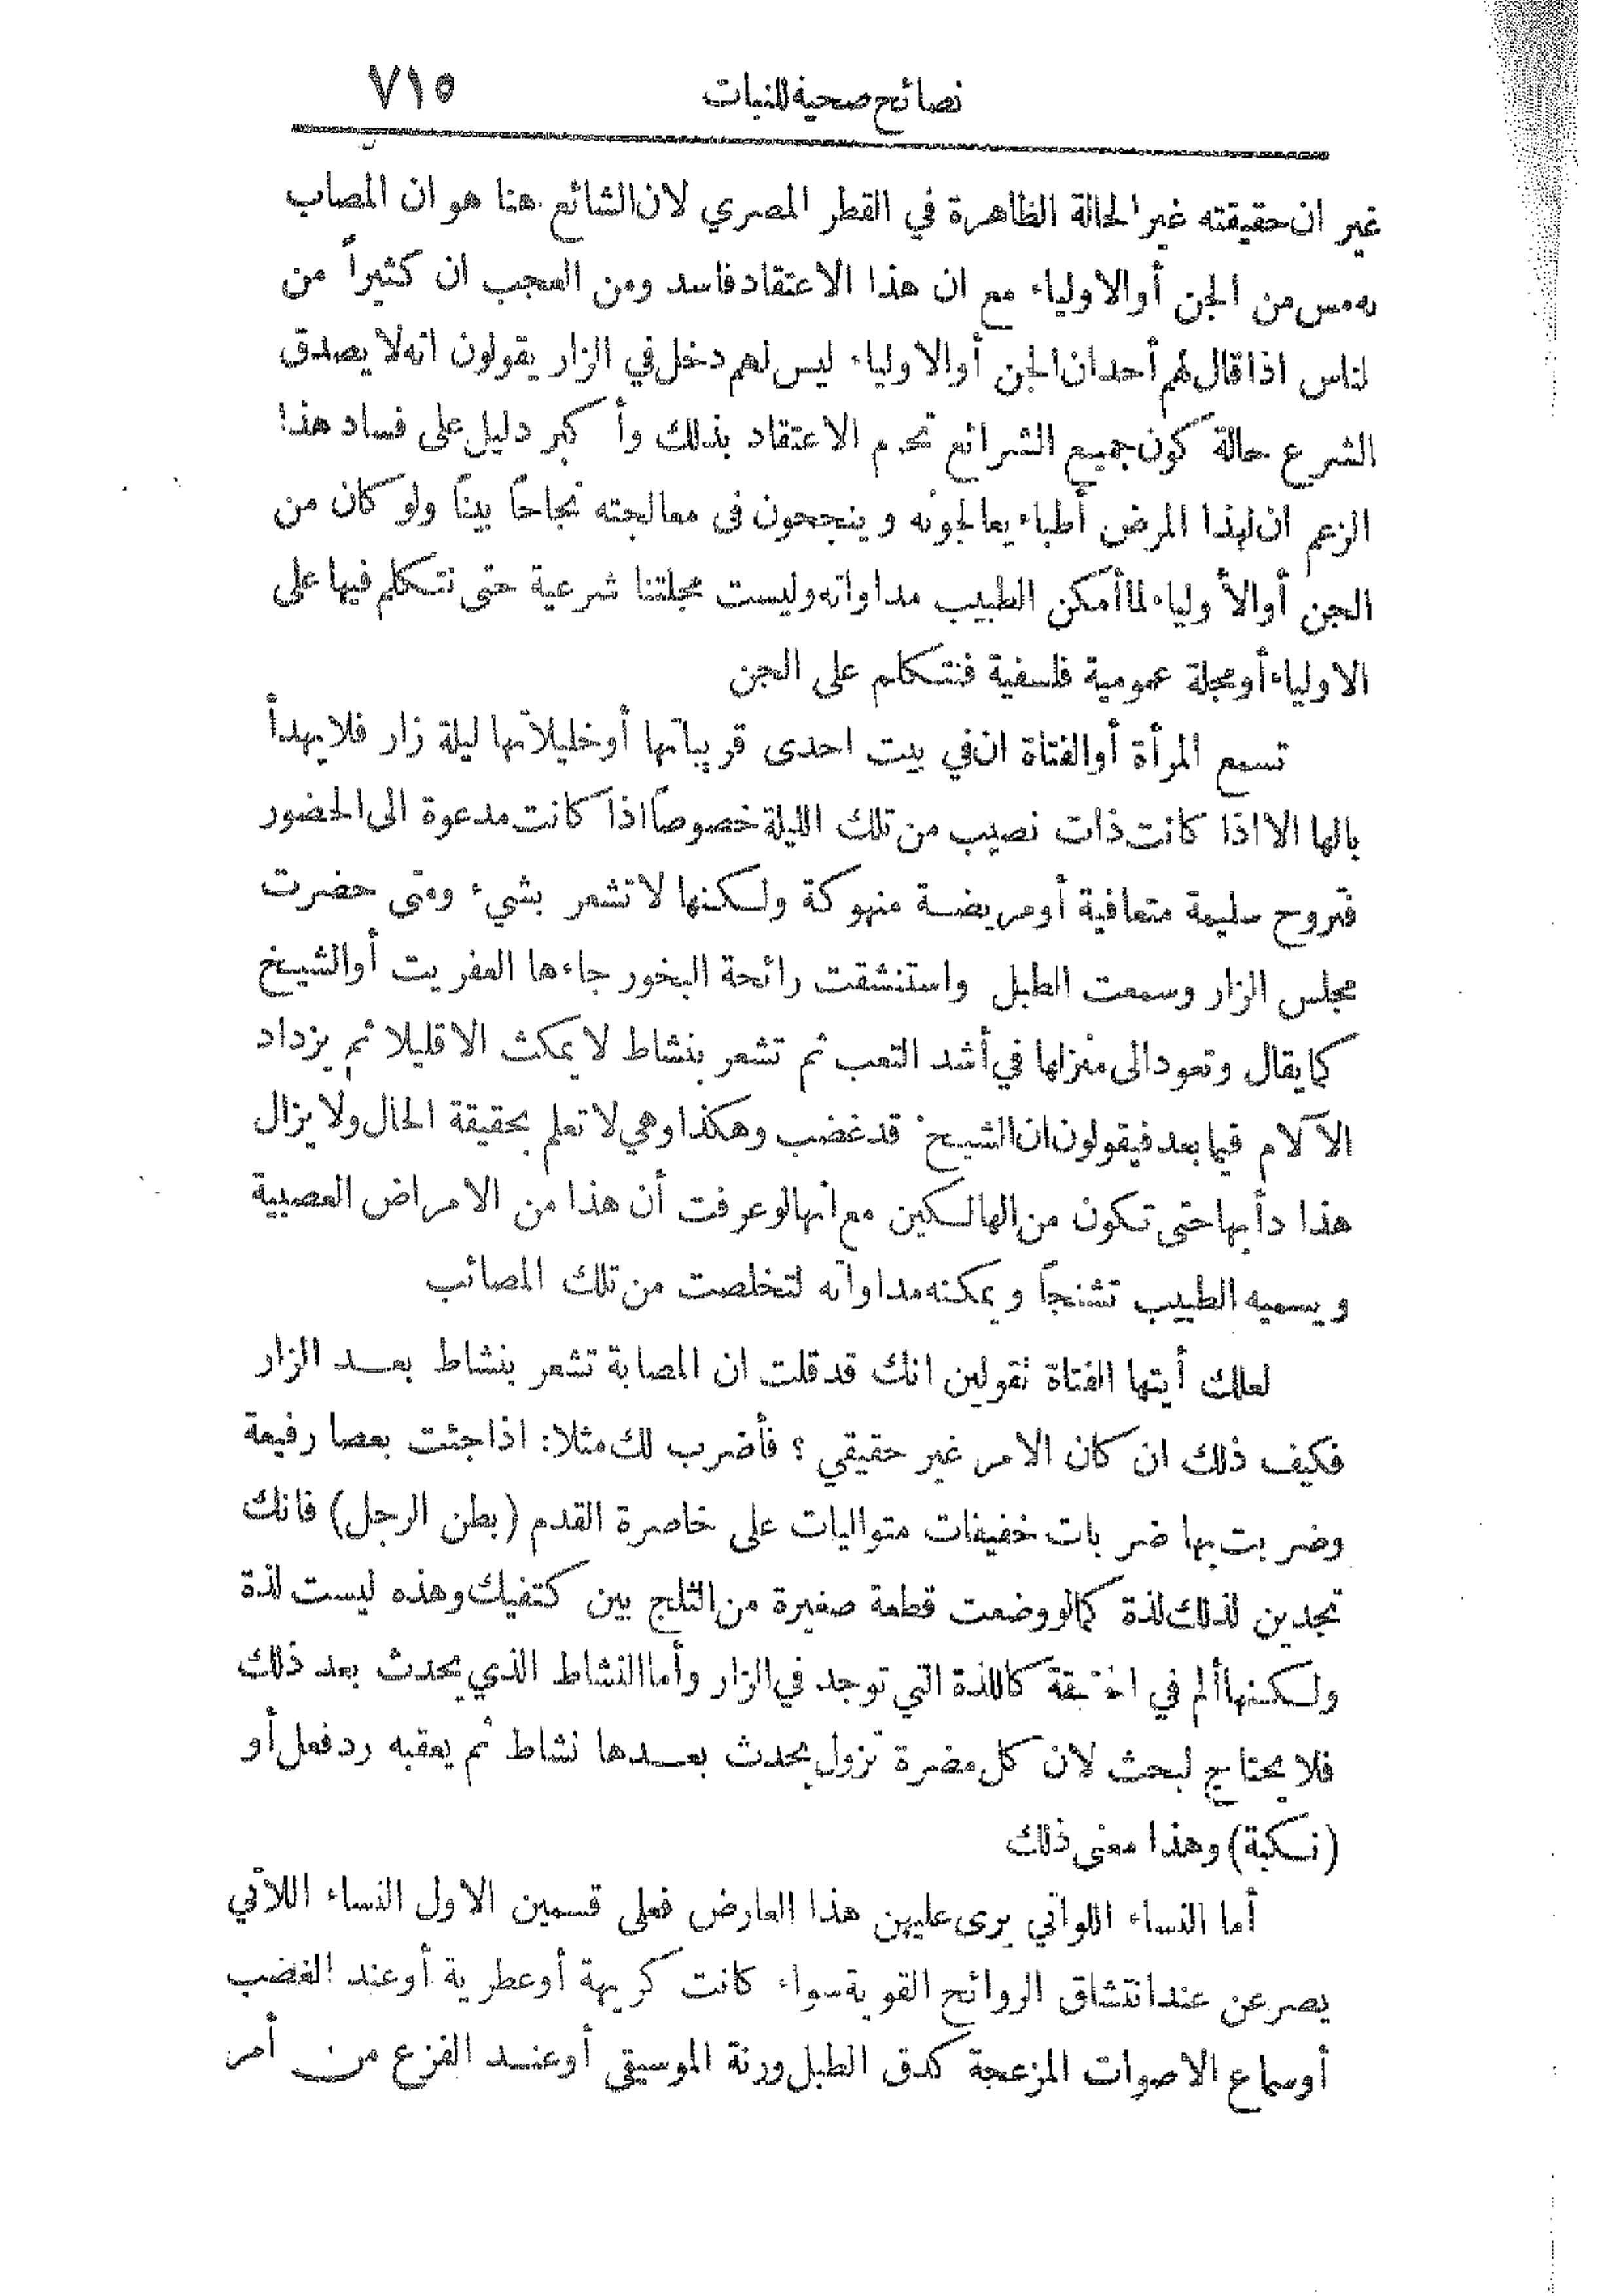 نصائح صحية للبنات ٧١٥
غير ان حقيقته غير الحالة الظاهرة في القطر المصري لان الشائع هنا هو ان المصاب
به مس من الجن أو الاولياء مع ان هذا الاعتقاد فاسد ومن العجب ان كثيراً من
لناس اذا قال لهم أحد ان الجن أو الاولياء ليس لهم دخل في الزار يقولون انه لا يصدق
الشرع حالة كون جميع الشرائع تحرم الاعتقاد بذلك وأكبر دليل على فساد هذا
الزعم ان لهذا المرض أطباء يعالجونه وينجحون في معالجته نجاحاً بيناً ولو كان من
الجن أو الأولياء لما أمكن الطبيب مداواته وليست مجلتنا شرعية حتى نتكلم فيها على
الاولياء أو مجلة عمومية فلسفية فنتكلم على الجن
تسمع المرأة أو الفتاة ان في بيت احدى قريباتها أو خليلاتها ليلة زار فلا يهدأ
بالها الا اذا كانت ذات نصيب من تلك الليلة خصوصاً اذا كانت مدعوة الى الحضور
فتروح سليمة متعافية أو مريضة منهوكة ولكنها لا تشعر بشيء ومتى حضرت
مجلس الزار وسمعت الطبل واستنشقت رائحة البخور جاءها العفريت أو الشيخ
كما يقال وتعود الى منزلها في أشد التعب ثم تشعر بنشاط لا يمكث الا قليلا ثم يزداد
الآلام فيما بعد فيقولون ان الشيخ قد غضب وهكذا وهي لا تعلم بحقيقة الحال ولا يزال
هذا دأبها حتى تكون من الهالكين مع انها لو عرفت أن هذا من الامراض العصبية
ويسميه الطبيب تشنجاً ويمكنه مداواته لتخلصت من تلك المصائب
لعلك أيتها الفتاة تقولين انك قد قلت ان المصابة تشعر بنشاط بعد الزار
فكيف ذلك ان كان الامر غير حقيقي ؟ فأضرب لك مثلا: اذا جئت بعصا رفيعة
وضربت بها ضربات خفيفات متواليات على خاصرة القدم (بطن الرجل) فانك
تجدين لذلك لذة كما لو وضعت قطعة صغيرة من الثلج بين كتفيك وهذه ليست لذة
ولكنها ألم في الحقيقة كاللذة التي توجد في الزار وأما النشاط الذي يحدث بعد ذلك
فلا يحتاج لبحث لان كل مضرة تزول يحدث بعدها نشاط ثم يعقبه رد فعل أو
(نكبة) وهذا معنى ذلك
أما النساء اللواتي يرى عليهن هذا العارض فعلى قسمين الاول النساء اللاتي
يصرعن عند انتشاق الروائح القوية سواء كانت كريهة أو عطرية أو عند الغضب
أو سماع الاصوات المزعجة كدق الطبل ورنة الموسيقى أو عند الفزع من أمر